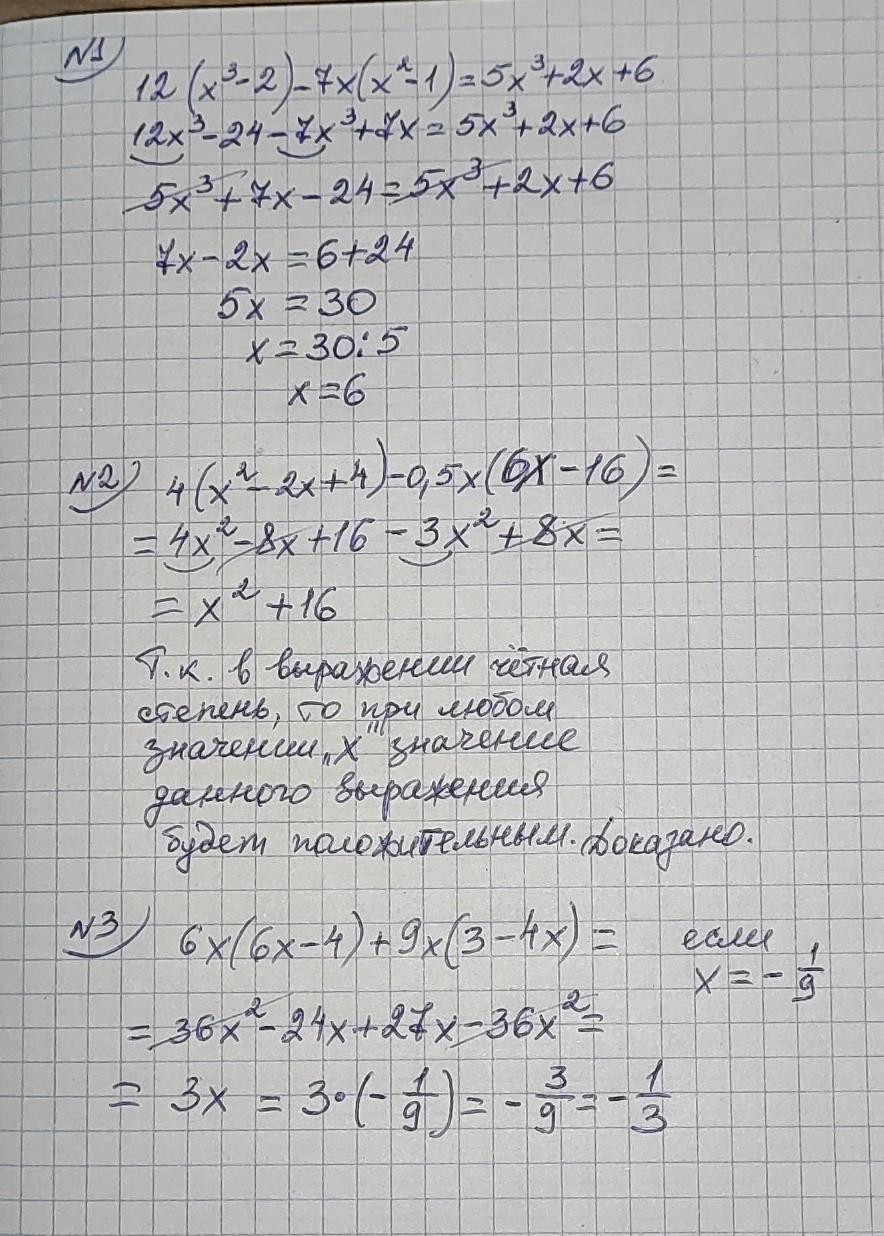 №1) 12(x³-2)-7x(x²-1)=5x³+2x+6
12x³-24-7x³+7x=5x³+2x+6
5x³+7x-24=5x³+2x+6
7x-2x=6+24
5x=30
x=30:5
x=6
№2) 4(x²-2x+4)-0,5x(6x-16)=
=4x²-8x+16-3x²+8x=
=x²+16
Т.к. в выражении чётная
степень, то при любом
значении „x" значение
данного выражения
будет положительным. Доказано.
№3) 6x(6x-4)+9x(3-4x)= если
x=-1/9
=36x²-24x+27x-36x²=
=3x=3·(-1/9)=-3/9=-1/3